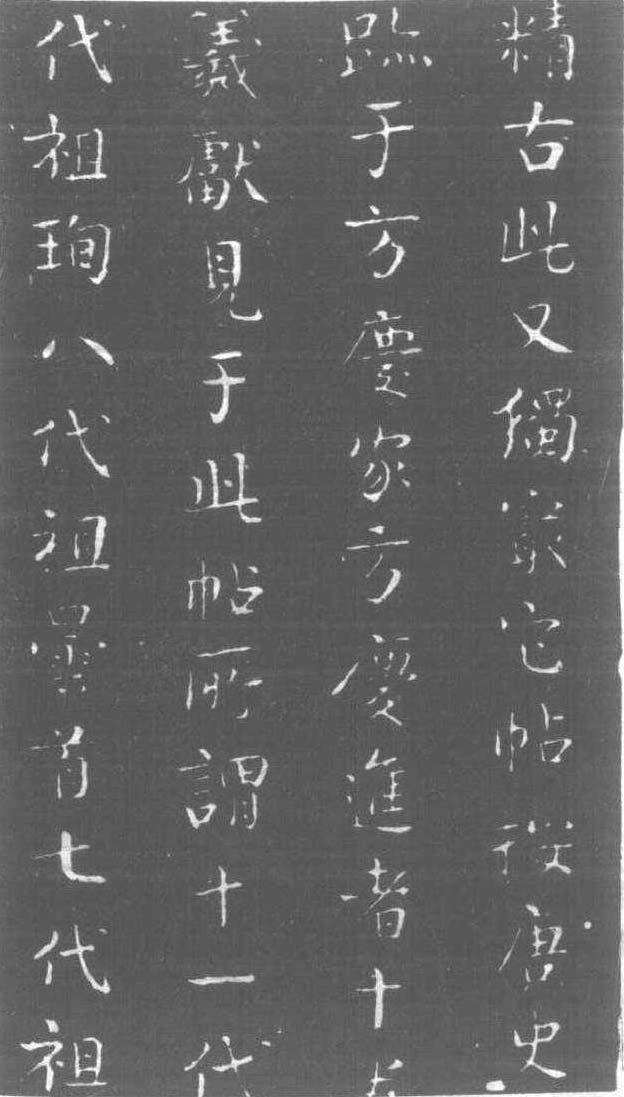 精古此又獨冣它帖按唐史
跡于方慶家方慶進者十
羲獻見于此帖所謂十一代
代祖珣八代祖曇首七代祖